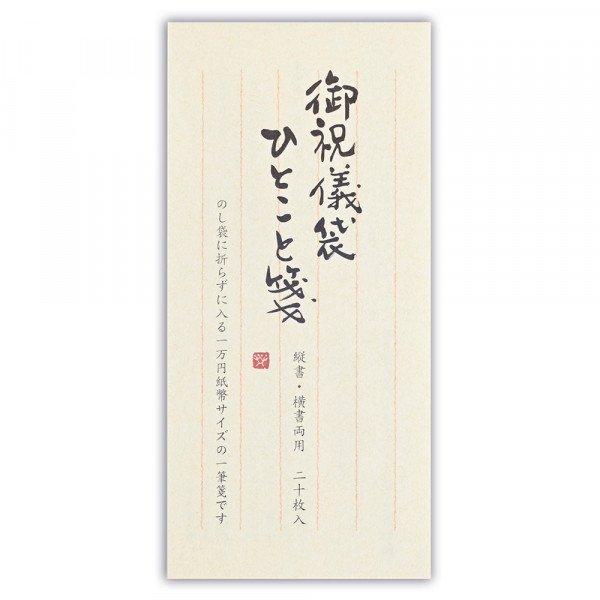 御祝儀袋
ひとこと箋
縦書・横書両用　二十枚入
のし袋に折らずに入る一万円紙幣サイズの一筆箋です